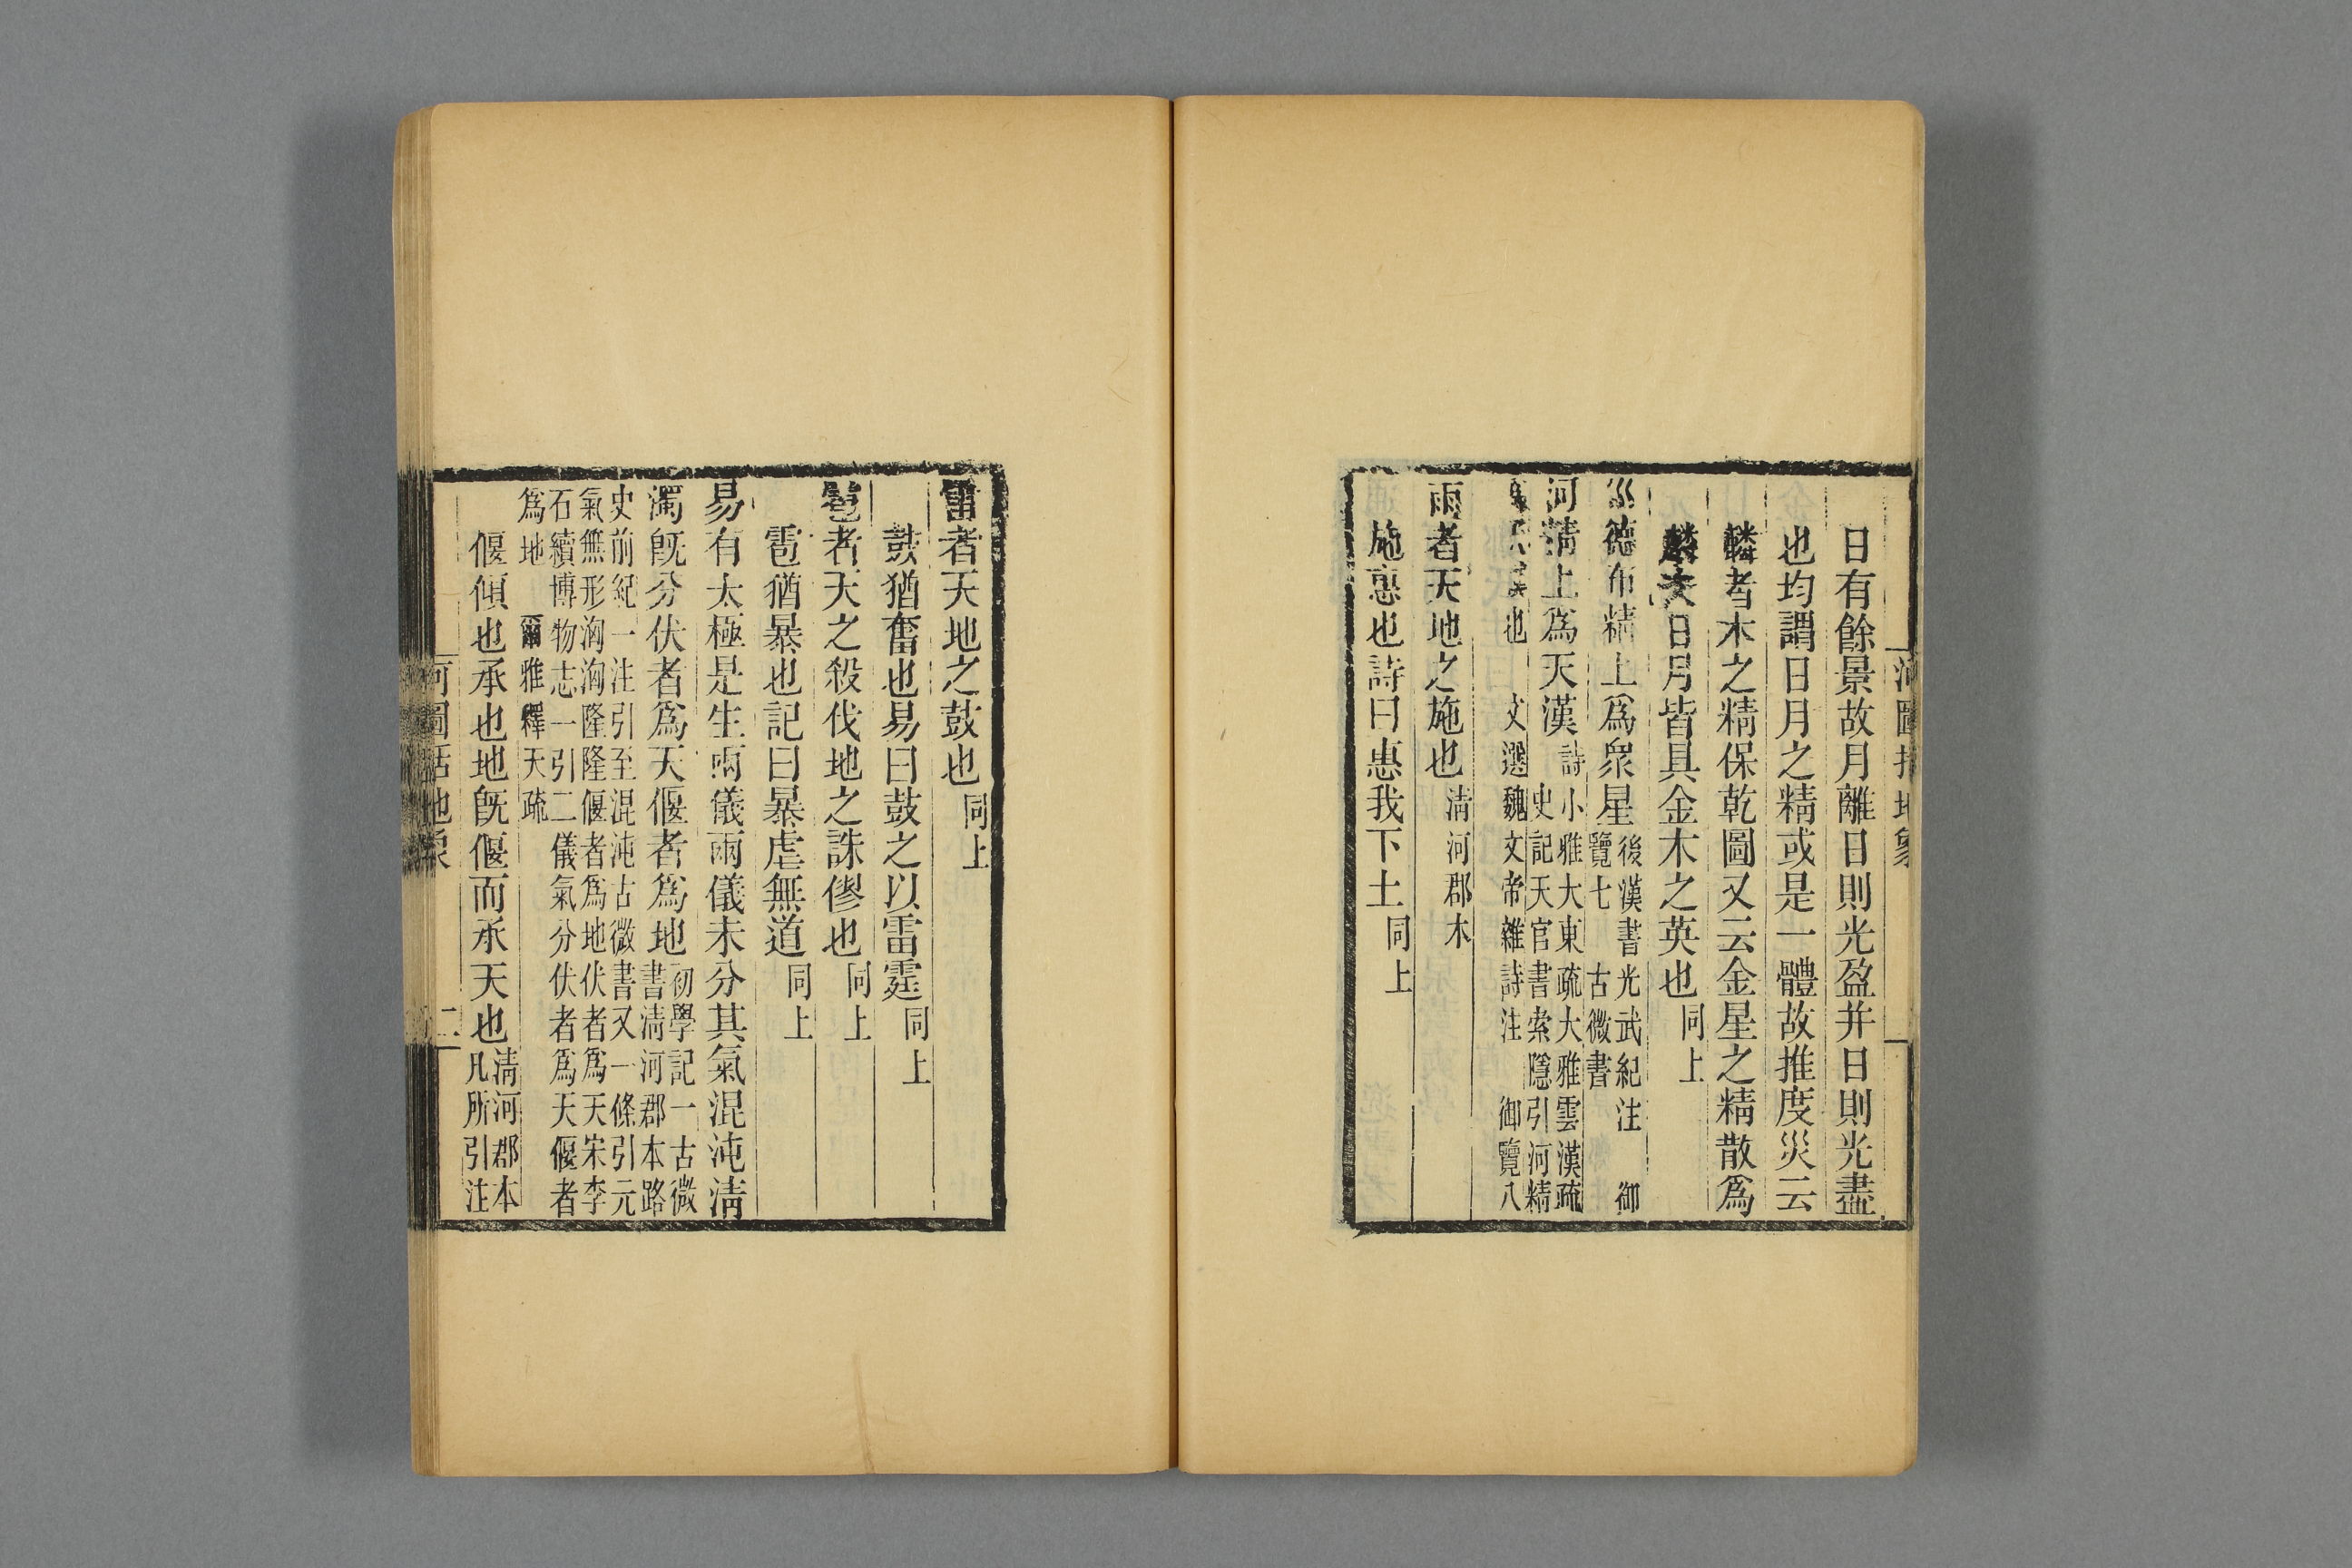 河圖括地象
日有餘景故月離日則光盈并日則光盡
也均謂日月之精或是一體故推度災云
麟者木之精保乾圖又云金星之精散爲
麟夫日月皆具金木之英也同上
德布精上爲衆星後漢書光武紀注 御覽七 古微書
河精上爲天漢詩小雅大東疏大雅雲漢疏史記天官書索隱引河精
也 文選魏文帝雜詩注 御覽八
雨者天地之施也清河郡木
施惠也詩曰惠我下土同上
雷者天地之鼓也同上
鼓猶奮也易曰鼓之以雷霆同上
雹者天之殺伐地之誅僇也同上
雹猶暴也記曰暴虐無道同上
易有太極是生兩儀兩儀未分其氣混沌清
濁旣分伏者爲天偃者爲地初學記一 古微書清河郡本路
史前紀一注引至混沌古微書又一條引元
氣無形洶洶隆隆偃者爲地伏者爲天宋李
石續博物志一引二儀氣分伏者爲天偃者
爲地 爾雅釋天疏
偃傾也承也地旣偃而承天也清河郡本凡所引注
河圖括地象 二